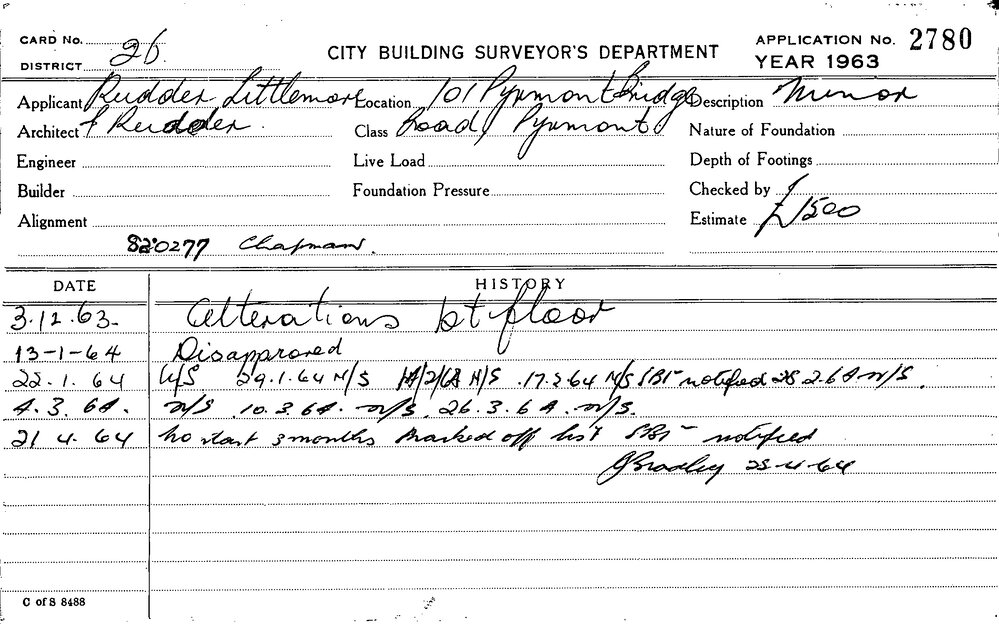 CARD No.
DISTRICT 26
CITY BUILDING SURVEYOR'S DEPARTMENT
APPLICATION No. 2780
YEAR 1963
Applicant Rudder Littlemore Location 101 Pyrmont Bridge Description Minor
Architect & Rudder. Class Road, Pyrmont Nature of Foundation
Engineer Live Load Depth of Footings
Builder Foundation Pressure Checked by
Alignment Estimate £1500
820277 Chapman.
DATE HISTORY
3.12.63. Alterations 1st floor
13-1-64 Disapproved
22.1.64 N/S 29.1.64 N/S 2/64 N/S 17.2.64 N/S notified 28 2.64 N/S.
4.3.64. N/S 10.3.64. N/S. 26.3.64. N/S.
21 4.64 No start 3 months Marked off list notified
JBradley 28-4-64
C of S 8488